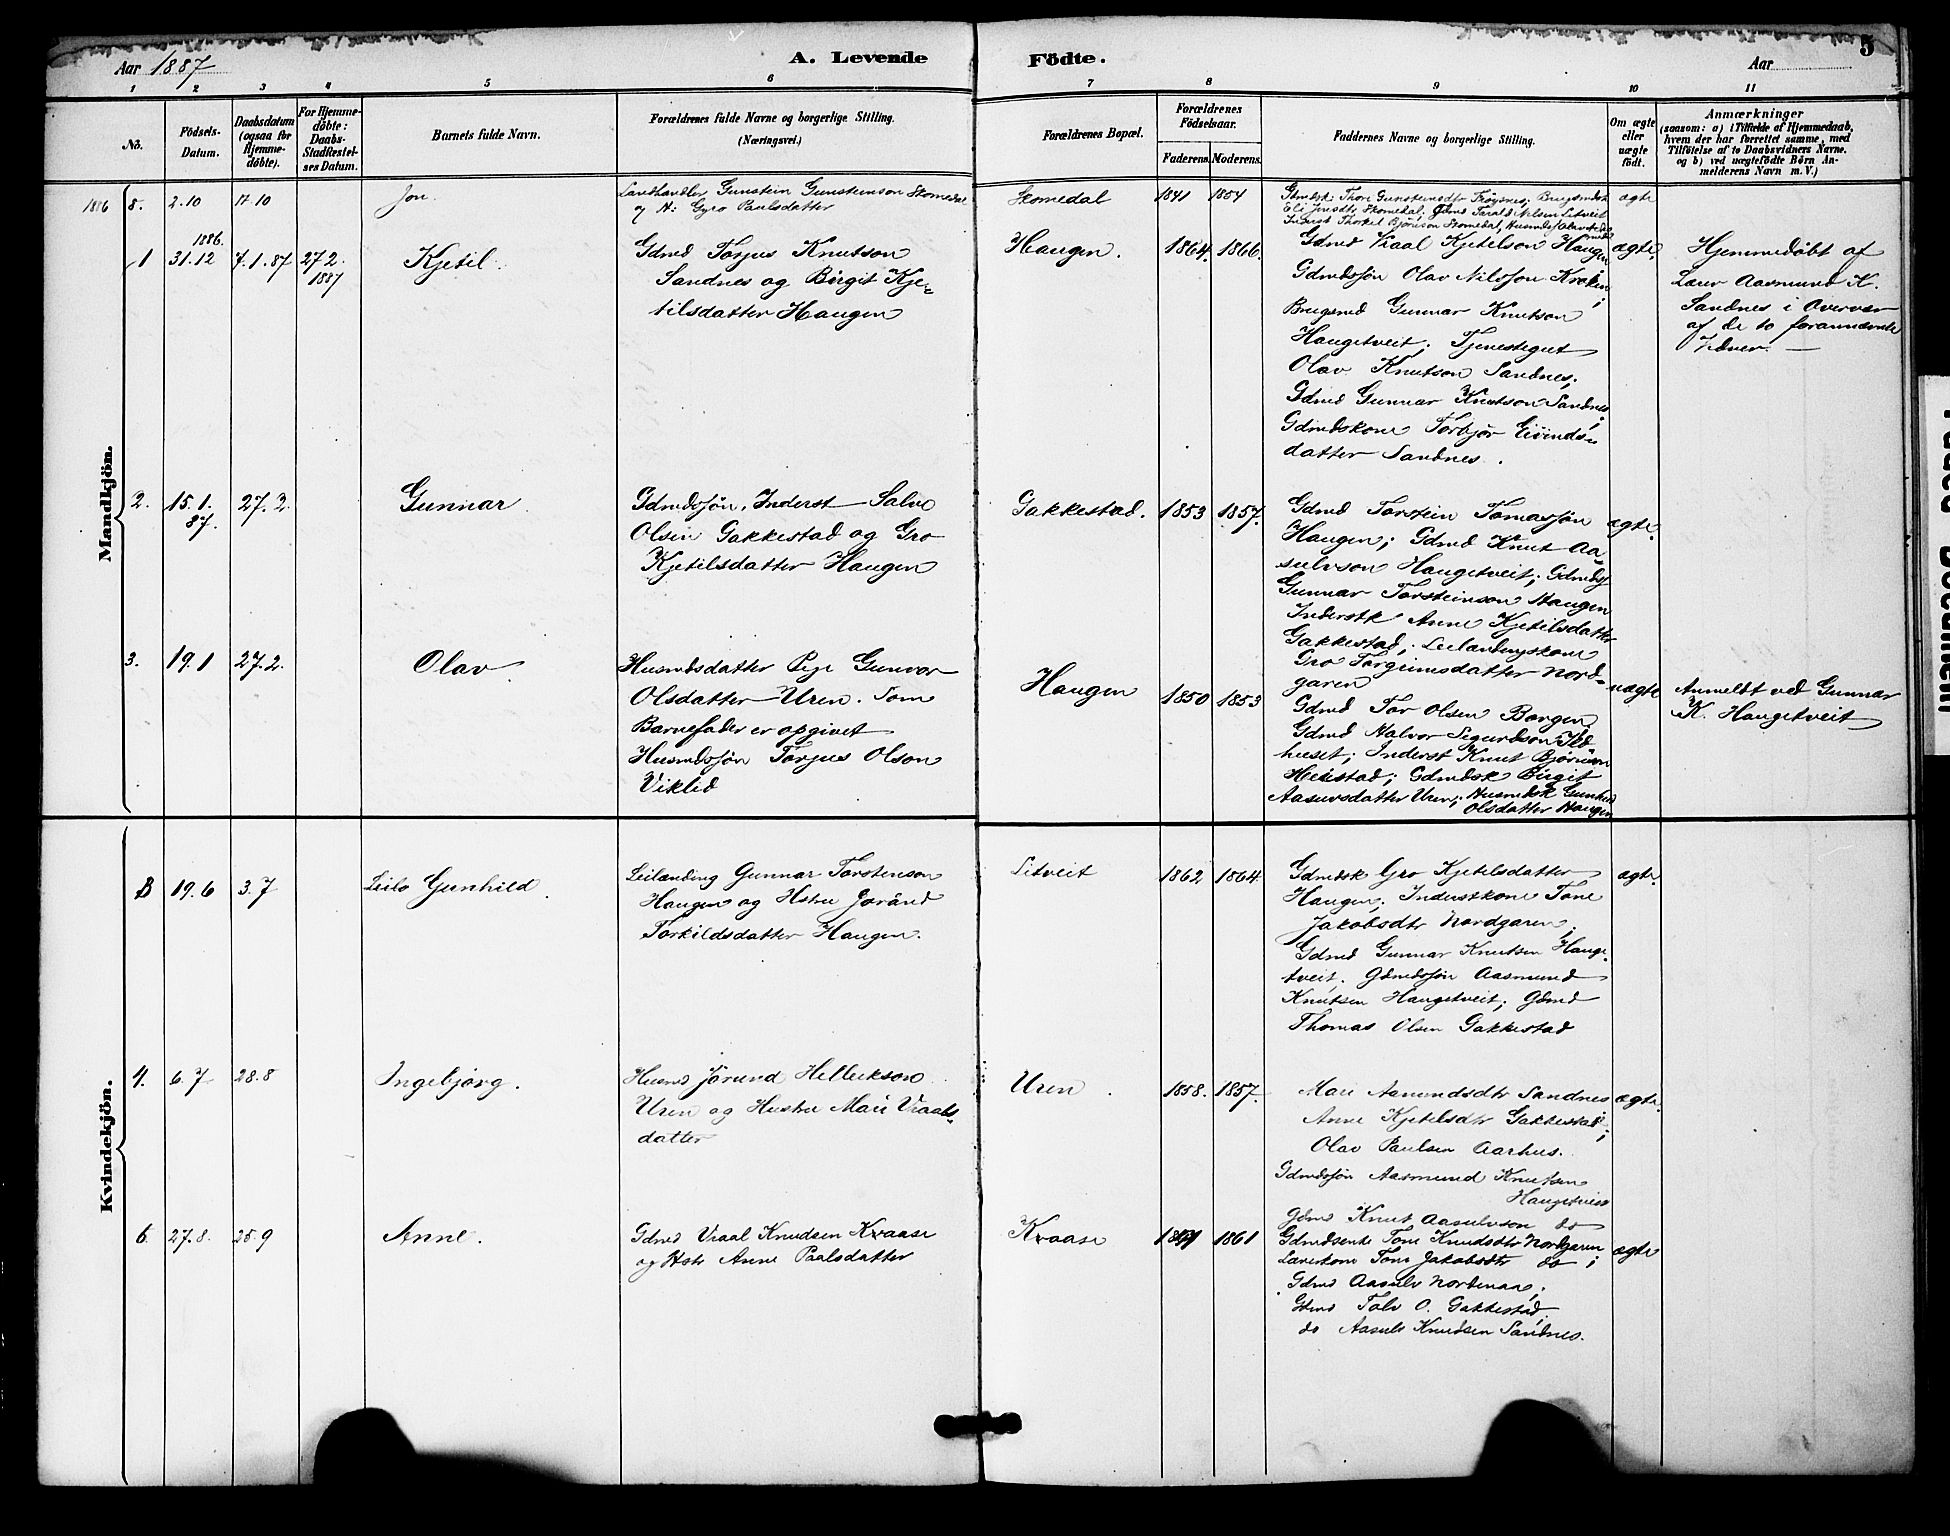 Aar 1887
A. Levende
Födte.
Aar
5
1 2 3 4 5 6 7 8 9 10 11
No.
Födsels-
Datum.
Daabsdatum
(ogsaa for
Hjemme-
döbte).
For Hjemme-
döbte:
Daabs-
Stadfæstel-
ses Datum.
Barnets fulde Navn.
Forældrenes fulde Navne og borgerlige Stilling.
(Næringsvei.)
Forældrenes Bopæl.
Forældrenes
Födselsaar.
Faderens. Moderens.
Faddernes Navne og borgerlige Stilling.
Om ægte
eller
uægte
födt.
Anmærkninger
(saasom: a) i Tilfælde af Hjemmedaab,
hvem der har forrettet samme, med
Tilföielse af to Daabsvidners Navne.
og b) ved uægtefödte Börn An-
melderens Navn m. V.)
Mandkjön.
1886 8. 2.10 17.10
Jon.
Landhandler Gunstein Gunsteinson Skomedal
og H: Gyro Paulsdatter
Skomedal 1841 1854
Gdmdsk: Thore Gunsteinsdtr Frøysnes;
Skomedal; Gdmd Tarald Nilsen Litveit
Thorkel Bjørnson Skomedal,
ægte
1 1886. 31.12 7.1.87 27.2 1887
Kjetil.
Gdmd Torjus Knutson
Sandnes og Birgit Kje-
tilsdatter Haugen
Haugen. 1864. 1866.
Gdmd Vraal Kjetelson Haugen
Gdmdssøn Olav Nilsson Kroken;
Brugsmd Gunnar Knutson
Haugetveit; Tjenestegut
Olav Knutson Sandnes;
Gdmd Gunnar Knutson Sandnes;
Gdmdskone Torbjør Eivinds-
datter Sandnes.
ægte.
Hjemmedøbt af
Lærer Aasmund K.
Sandnes i Overvær
af de to forannævnte
2. 15.1. 87. 27.2.
Gunnar
Gdmdssøn, Inderst Salve
Olsen Gakkestad og Gro
Kjetilsdatter Haugen
Gakkestad. 1853 1857.
Gdmd Torstein Tomassøn
Haugen; Gdmd Knut Aa-
sulvson Haugetveit; Gdmds
Gunnar Torsteinson Haugen
Inderstk Anne Kjetilsdatter
Gakkestad; Leilændingskone
Gro Torgrimsdatter Nord-
garen
ægte.
3. 19.1 27.2.
Olav
Husmdsdatter Pige Gunvor
Olsdatter Uren. Som
Barnefader er opgivet
Husmdssøn Torjus Olson
Viklid
Haugen 1850 1853
Gdmd Tor Olsen Borgen
Gdmd Halvor Sigurdson
huset; Inderst Knut Bjørnson
Heistad; Gdmdsk Birgit
Aasulvsdatter Uren; Husmdsk Gunhild
Olsdatter Haugen
uægte
Anmeldt ved Gunnar
K. Haugetveit
Kvindekjön.
19.6 3.7
Gunhild.
Leilænding Gunnar Torstenson
Haugen og Hstru Jorånd
Torkildsdatter Haugen.
Litveit 1862 1864
Gdmdsk Gro Kjetelsdatter
Haugen; Inderstkone Tone
Jakobsdtr Nordgaren;
Gdmd Gunnar Knutsen Hauge-
tveit. Gdmdssøn Aasmund
Knutsen Haugetveit; Gdmd
Thomas Olsen Gakkestad
ægte.
4. 6.7 28.8
Ingebjørg.
Husmd Jørund Hellekson
Uren og Hustru Mari Vraals-
datter
Uren. 1858. 1857.
Mari Aamundsdtr Sandnes
Anne Kjetelsdtr Gakkestad;
Olav Paulsen Aarhus.
Gdmdssøn Aasmund Knutsen
Haugetveit
ægte.
6. 27.8. 25.9
Anne.
Gdmd Vraal Knudsen Kvaase
og Hstr Anne Paalsdatter
Kvaase 1861
Gdmd Knut Aasulvson do
Gdmdsenke Tone Knudsdtr Nordgaren
Lærerkone Tone Jakobsdtr do;
Gdmd Aasulv Nordenaa;
Gdmd Talv O. Gakkestad;
do Aasulv Knudsen Sandnes.
ægte